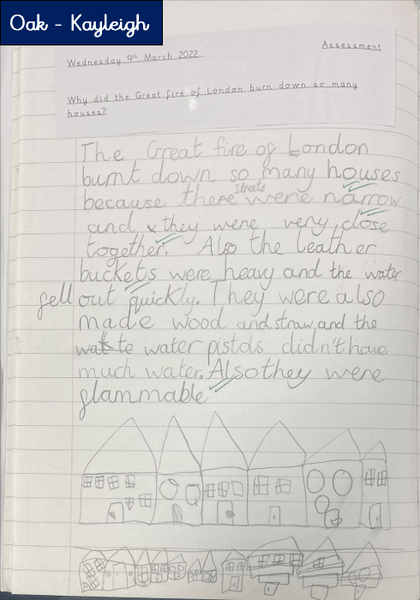 Oak - Kayleigh
Assessment
Wednesday 9th March 2022
Why did the Great fire of London burn down so many
houses?
The Great fire of London
burnt down so many houses
because there were narrow
streets
and they were very close
together. Also the leather
buckets were heavy and the water
fell out quickly. They were also
made wood and straw, and the
water pistols didn't have
much water. Also they were
flammable